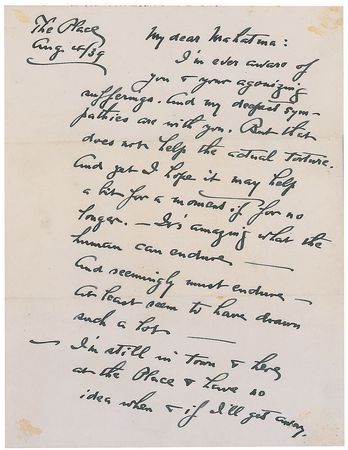 The Place
Aug. 4/39
My dear Mahatma:
I'm ever aware of
you & your agonizing
sufferings. And my deepest sym-
pathies are with you. But that
does not help the actual torture.
And yet I hope it may help
a bit for a moment if for no
longer. — It's amazing what the
human can endure —
And seemingly must endure —
At least seem to have drawn
such a lot —
— I'm still in town & here
at the Place & have no
idea when & if I'll get away.